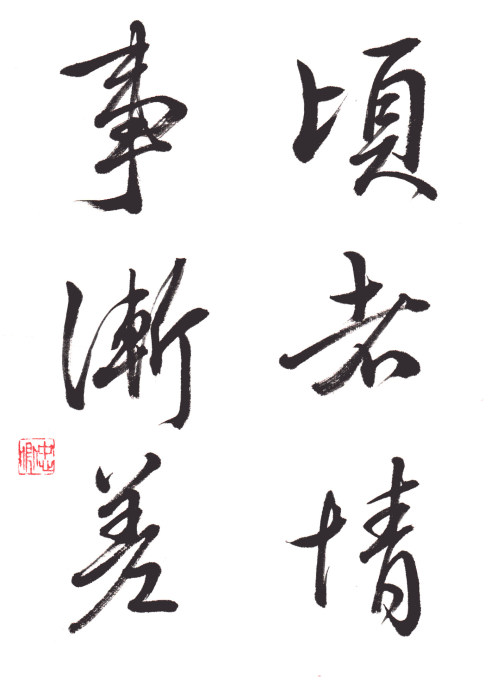 頃者情
事漸差